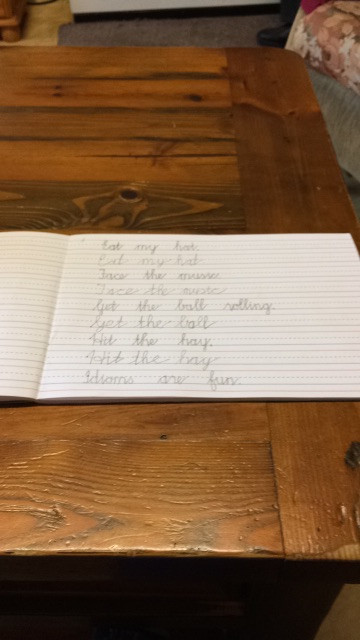 Eat my hat.
Eat my hat
Face the music
Face the music
Get the ball rolling.
Get the ball
Hit the hay.
Hit the hay
Idioms are fun.